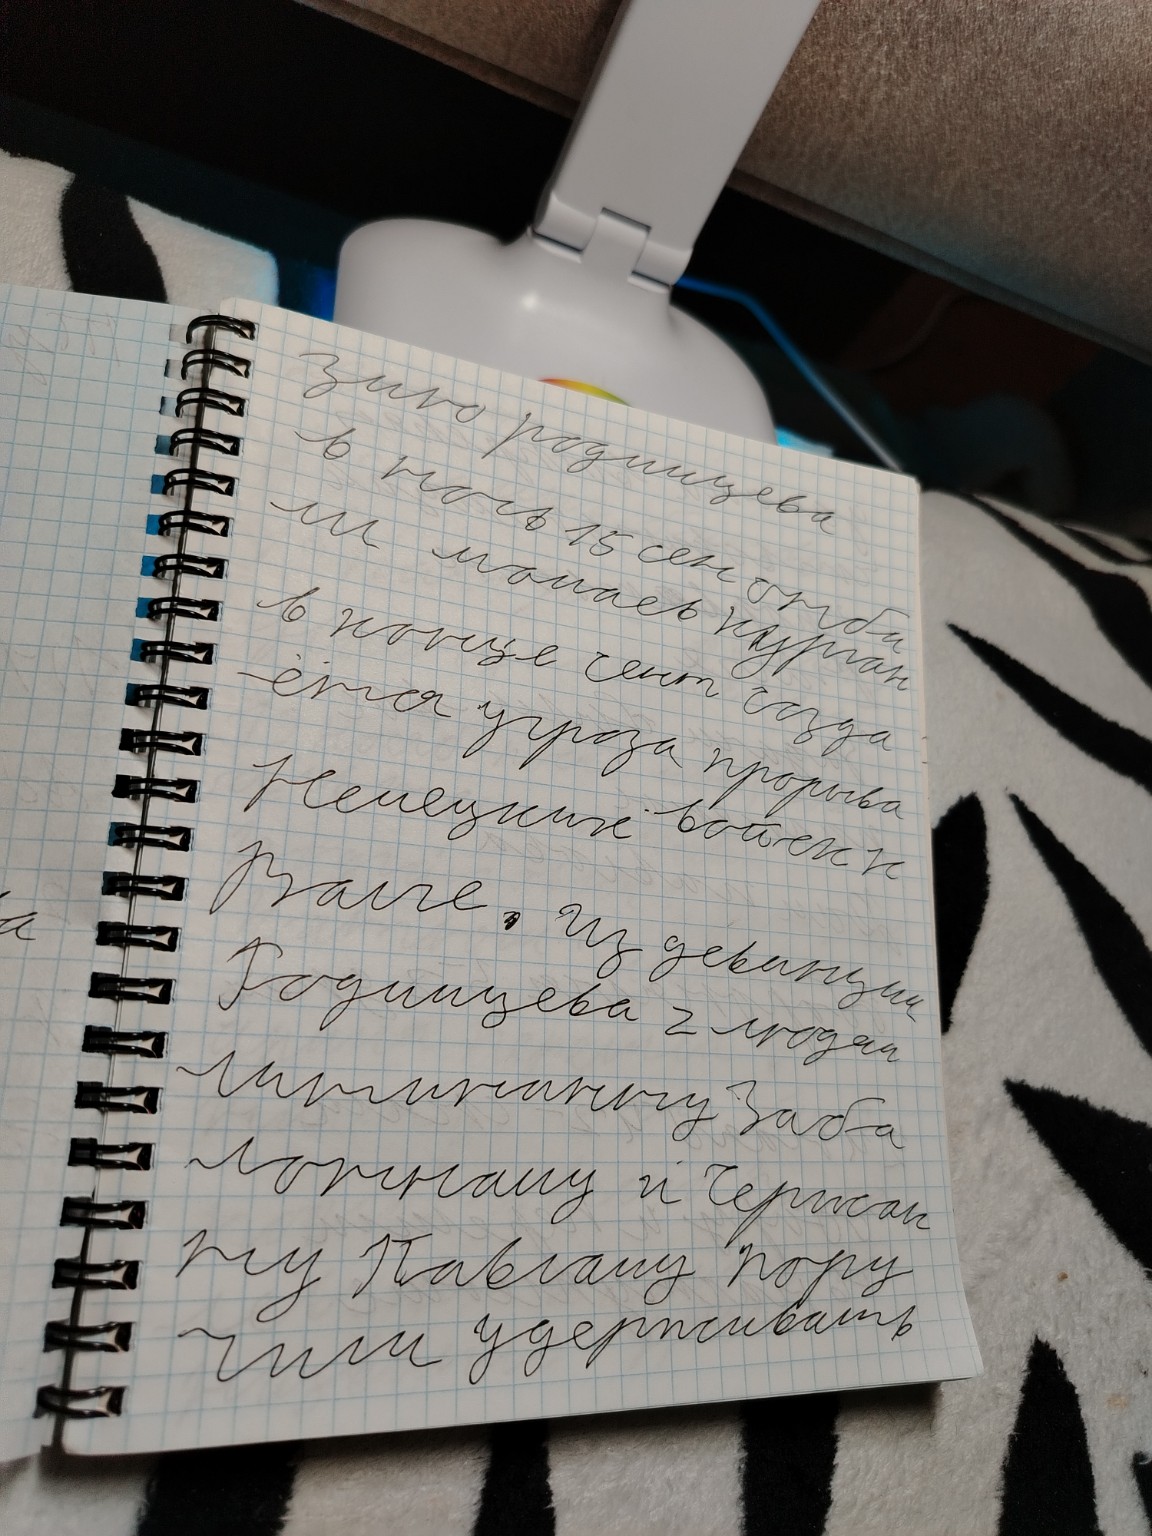 зию родимцева
в ночь 15 сентября
ли мамаев курган
в конце сент созда
ётся угроза прорыва
Немецких войск к
Волге. Из дивизии
Родимцева 2 людям
литинанту Заба
лотнаму и Сержан
ту Павлаву пору
чили удерживать